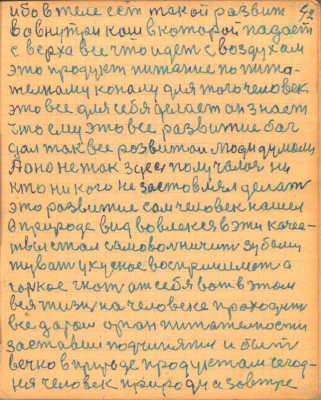 42
ибо в теле есть такой развит
во внутри кош в которой падает
с верха все что идет с воздухам
это продукт питание по пита-
телному каналу для того человек
это все для себя делает он знает
что ему это все развитие бог
дал так все розвитои люди думали
А оно не так здесь получалося ни
кто ни кого не застовлял делать
это развитие сам человек нашел
в природе вид вовлекся в эти качес-
твы стал самоволничит зубами
жуват укусное воспринимат а
горкое гнат от себя вот в этом
вся жизн на человеке проходит
все даром орган питателности
заставил подчинятя и быт
вечно в природе продуктам сегод-
ня человек природы а завтре